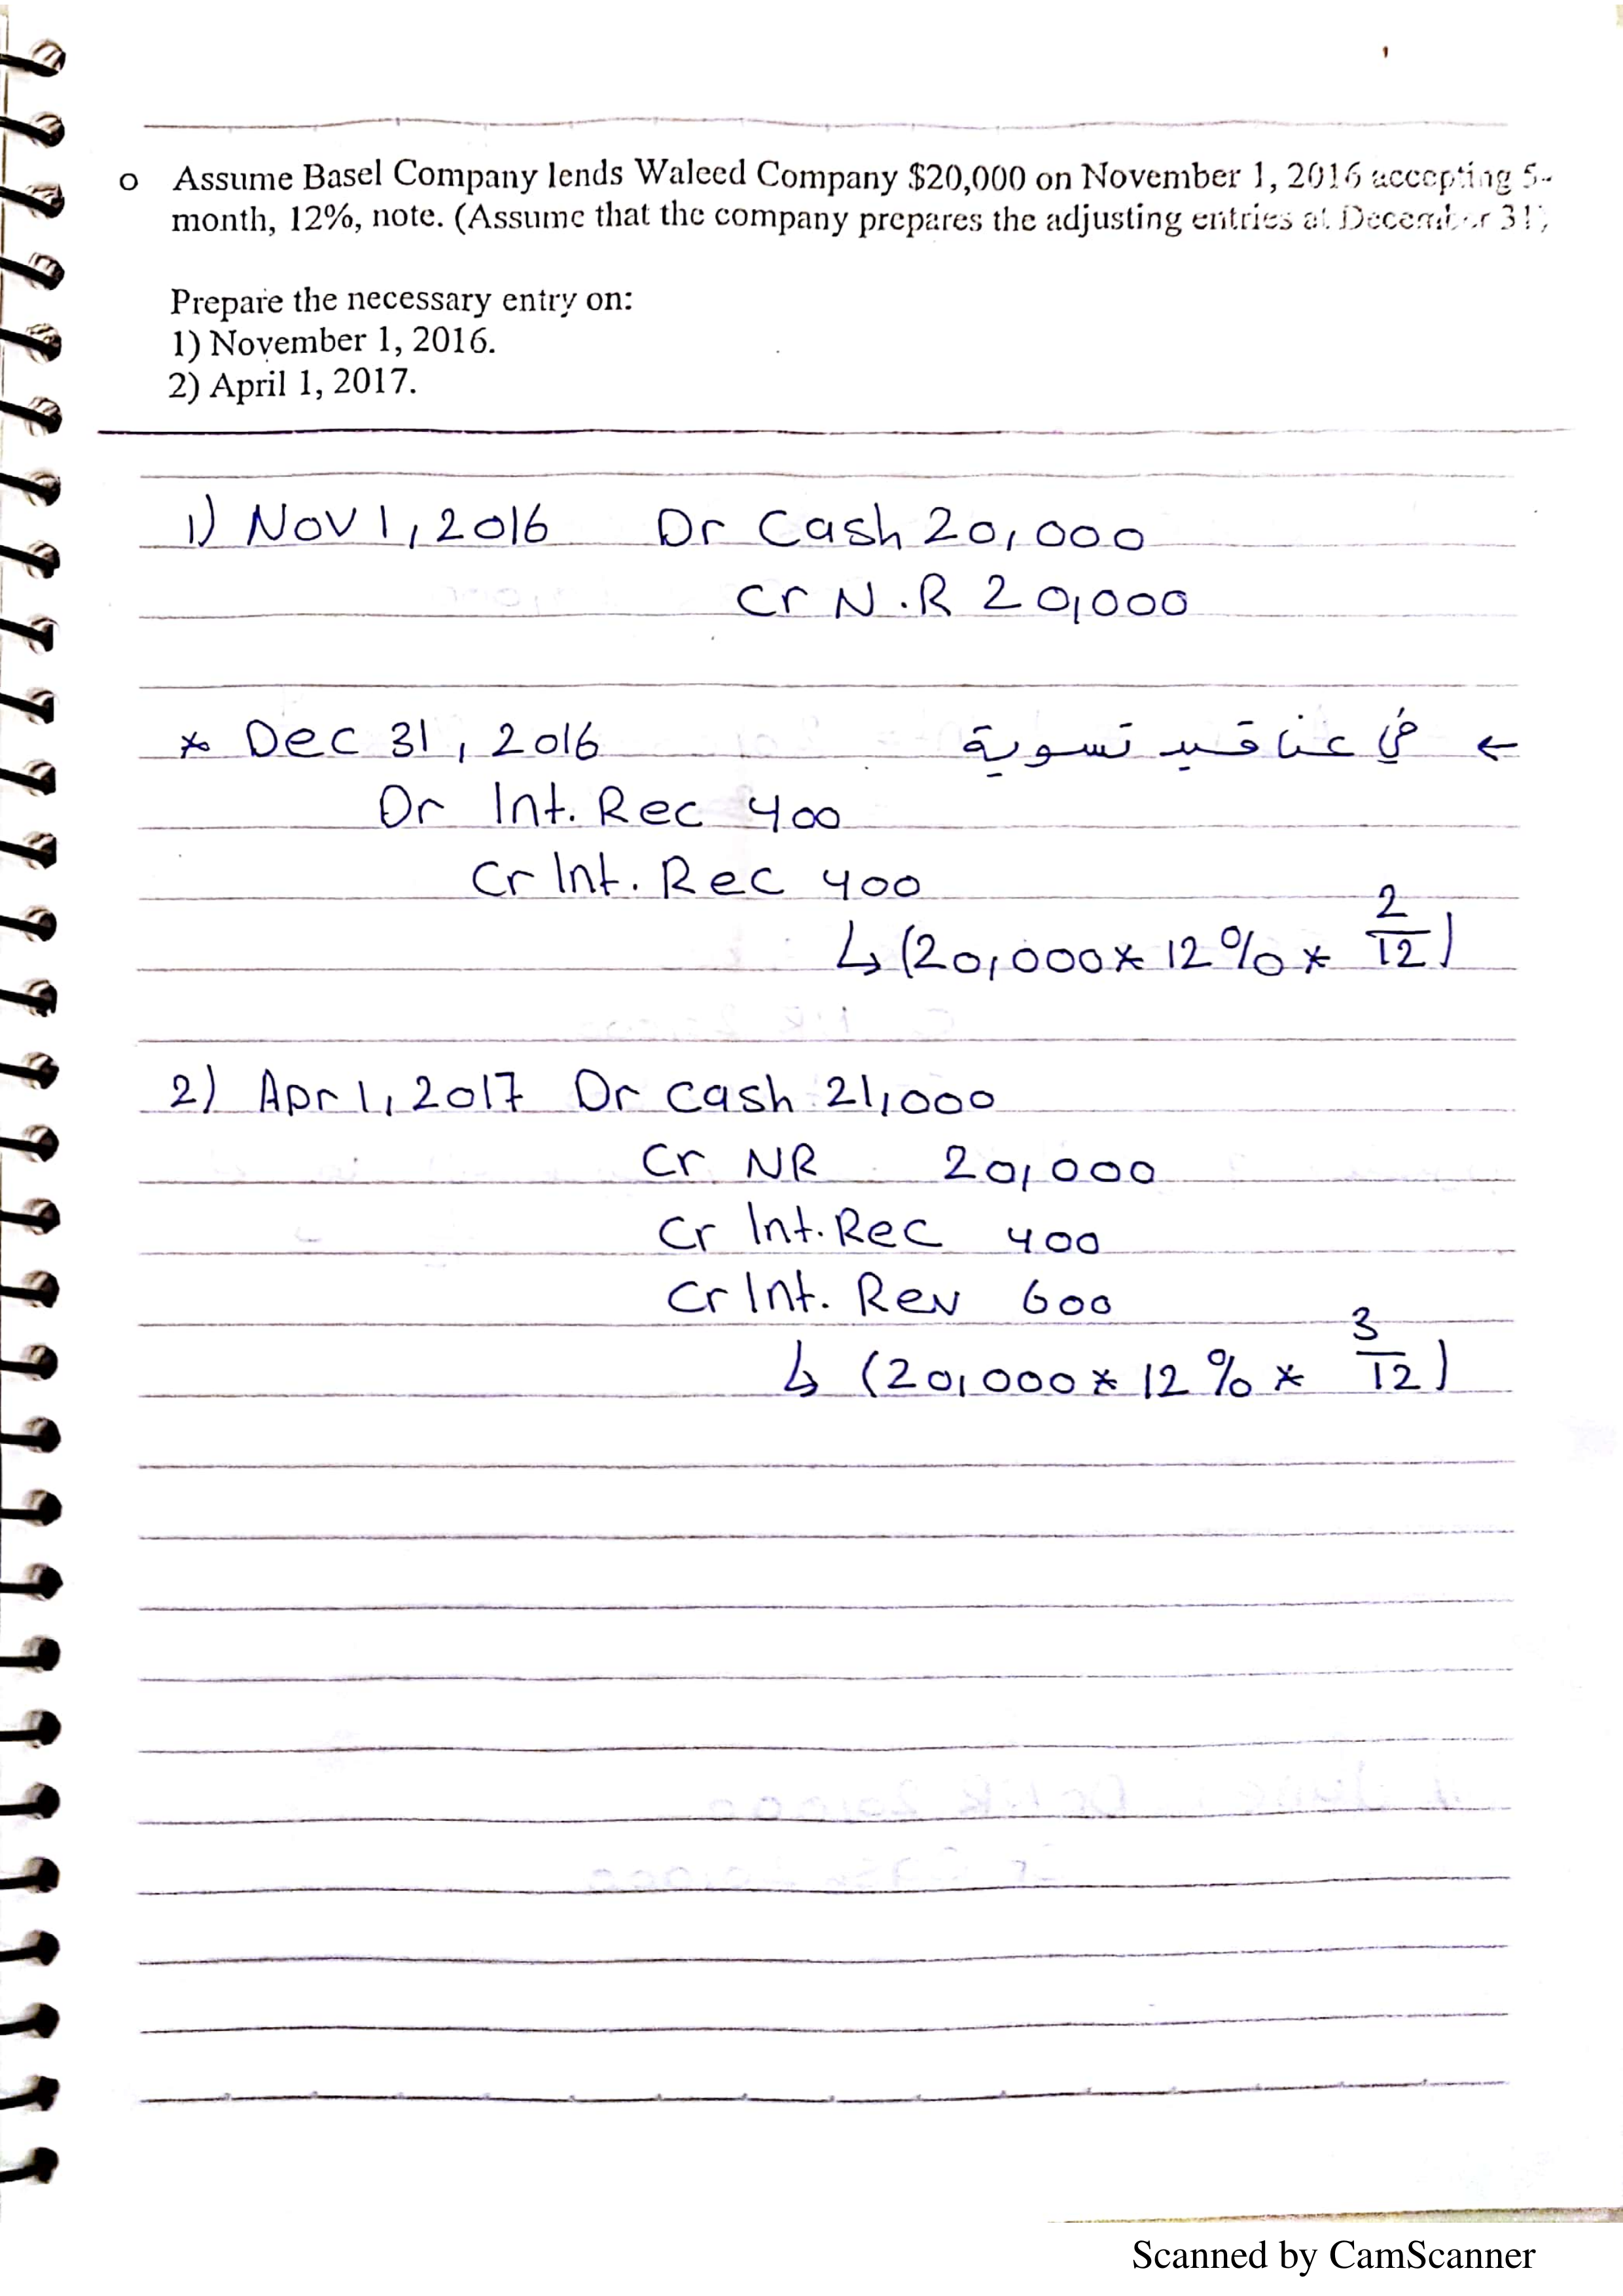 o Assume Basel Company lends Waleed Company $20,000 on November 1, 2016 accepting 5-
month, 12%, note. (Assume that the company prepares the adjusting entries at December 31)
Prepare the necessary entry on:
1) November 1, 2016.
2) April 1, 2017.
1) Nov 1, 2016 Dr Cash 20,000
Cr N.R 20,000
* Dec 31, 2016 ← في عنا قيد تسوية
Dr Int. Rec 400
Cr Int. Rec 400
↳ (20,000 * 12% * 2/12)
2) Apr 1, 2017 Dr Cash 21,000
Cr NR 20,000
Cr Int. Rec 400
Cr Int. Rev 600
↳ (20,000 * 12% * 3/12)
Scanned by CamScanner